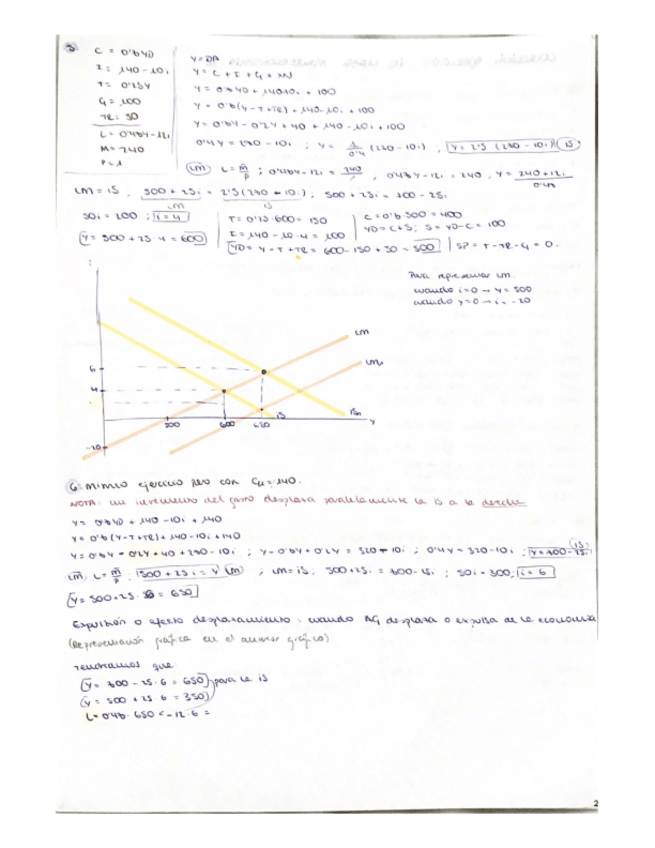 5. C = 0'8YD
I = 140 - 10i
T = 0'25Y
G = 100
TR = 50
L = 0'48Y - 12i
M = 240
P = 1
Y = DA
Y = C + I + G + XN
Y = 0'8YD + 140-10i + 100
Y = 0'8(Y-T+TR) + 140-10i + 100
Y = 0'8Y - 0'2Y + 40 + 140 - 10i + 100
0'4Y = 280 - 10i ; Y = 1/0'4 (280 - 10i) , Y = 2'5 (280 - 10i) IS
LM L = M/P ; 0'48Y - 12i = 240 , 0'48Y - 12i = 240 , Y = 240+12i / 0'48
LM = IS , 500 + 25i = 2'5(280 - 10i) ; 500 + 25i = 700 - 25i
LM IS
50i = 200 ; i = 4
Y = 500 + 25 · 4 = 600
T = 0'25 · 600 = 150
I = 140 - 10 · 4 = 100
YD = Y - T + TR = 600 - 150 + 50 = 500
C = 0'8 · 500 = 400
YD = C + S ; S = YD - C = 100
SP = T - TR - G = 0.
Para representar LM.
cuando i = 0 → Y = 500
cuando Y = 0 → i = -20
i
LM
LM₁
6
4
IS
IS₁
Y
500
600
650
-20
6. Mismo ejercicio pero con G₁ = 140.
NOTA: un incremento del gasto desplaza paralelamente la IS a la derecha
Y = 0'8YD + 140 - 10i + 140
Y = 0'8(Y-T+TR) + 140 - 10i + 140
Y = 0'8Y - 0'2Y + 40 + 280 - 10i ; Y - 0'8Y + 0'2Y = 320 - 10i ; 0'4Y = 320 - 10i ; Y = 800 - 25i IS
LM L = M/P ; 500 + 25i = Y LM ; LM = IS ; 500 + 25i = 800 - 25i ; 50i = 300 ; i = 6
Y = 500 + 25 · 6 = 650
Expulsión o efecto desplazamiento: cuando ΔG desplaza o expulsa de la economía
(Representación gráfica en el anterior gráfico)
Tendríamos que
Y = 800 - 25 · 6 = 650 para la IS
Y = 500 + 25 · 6 = 350
L = 0'48 · 650 - 12 · 6 =
2